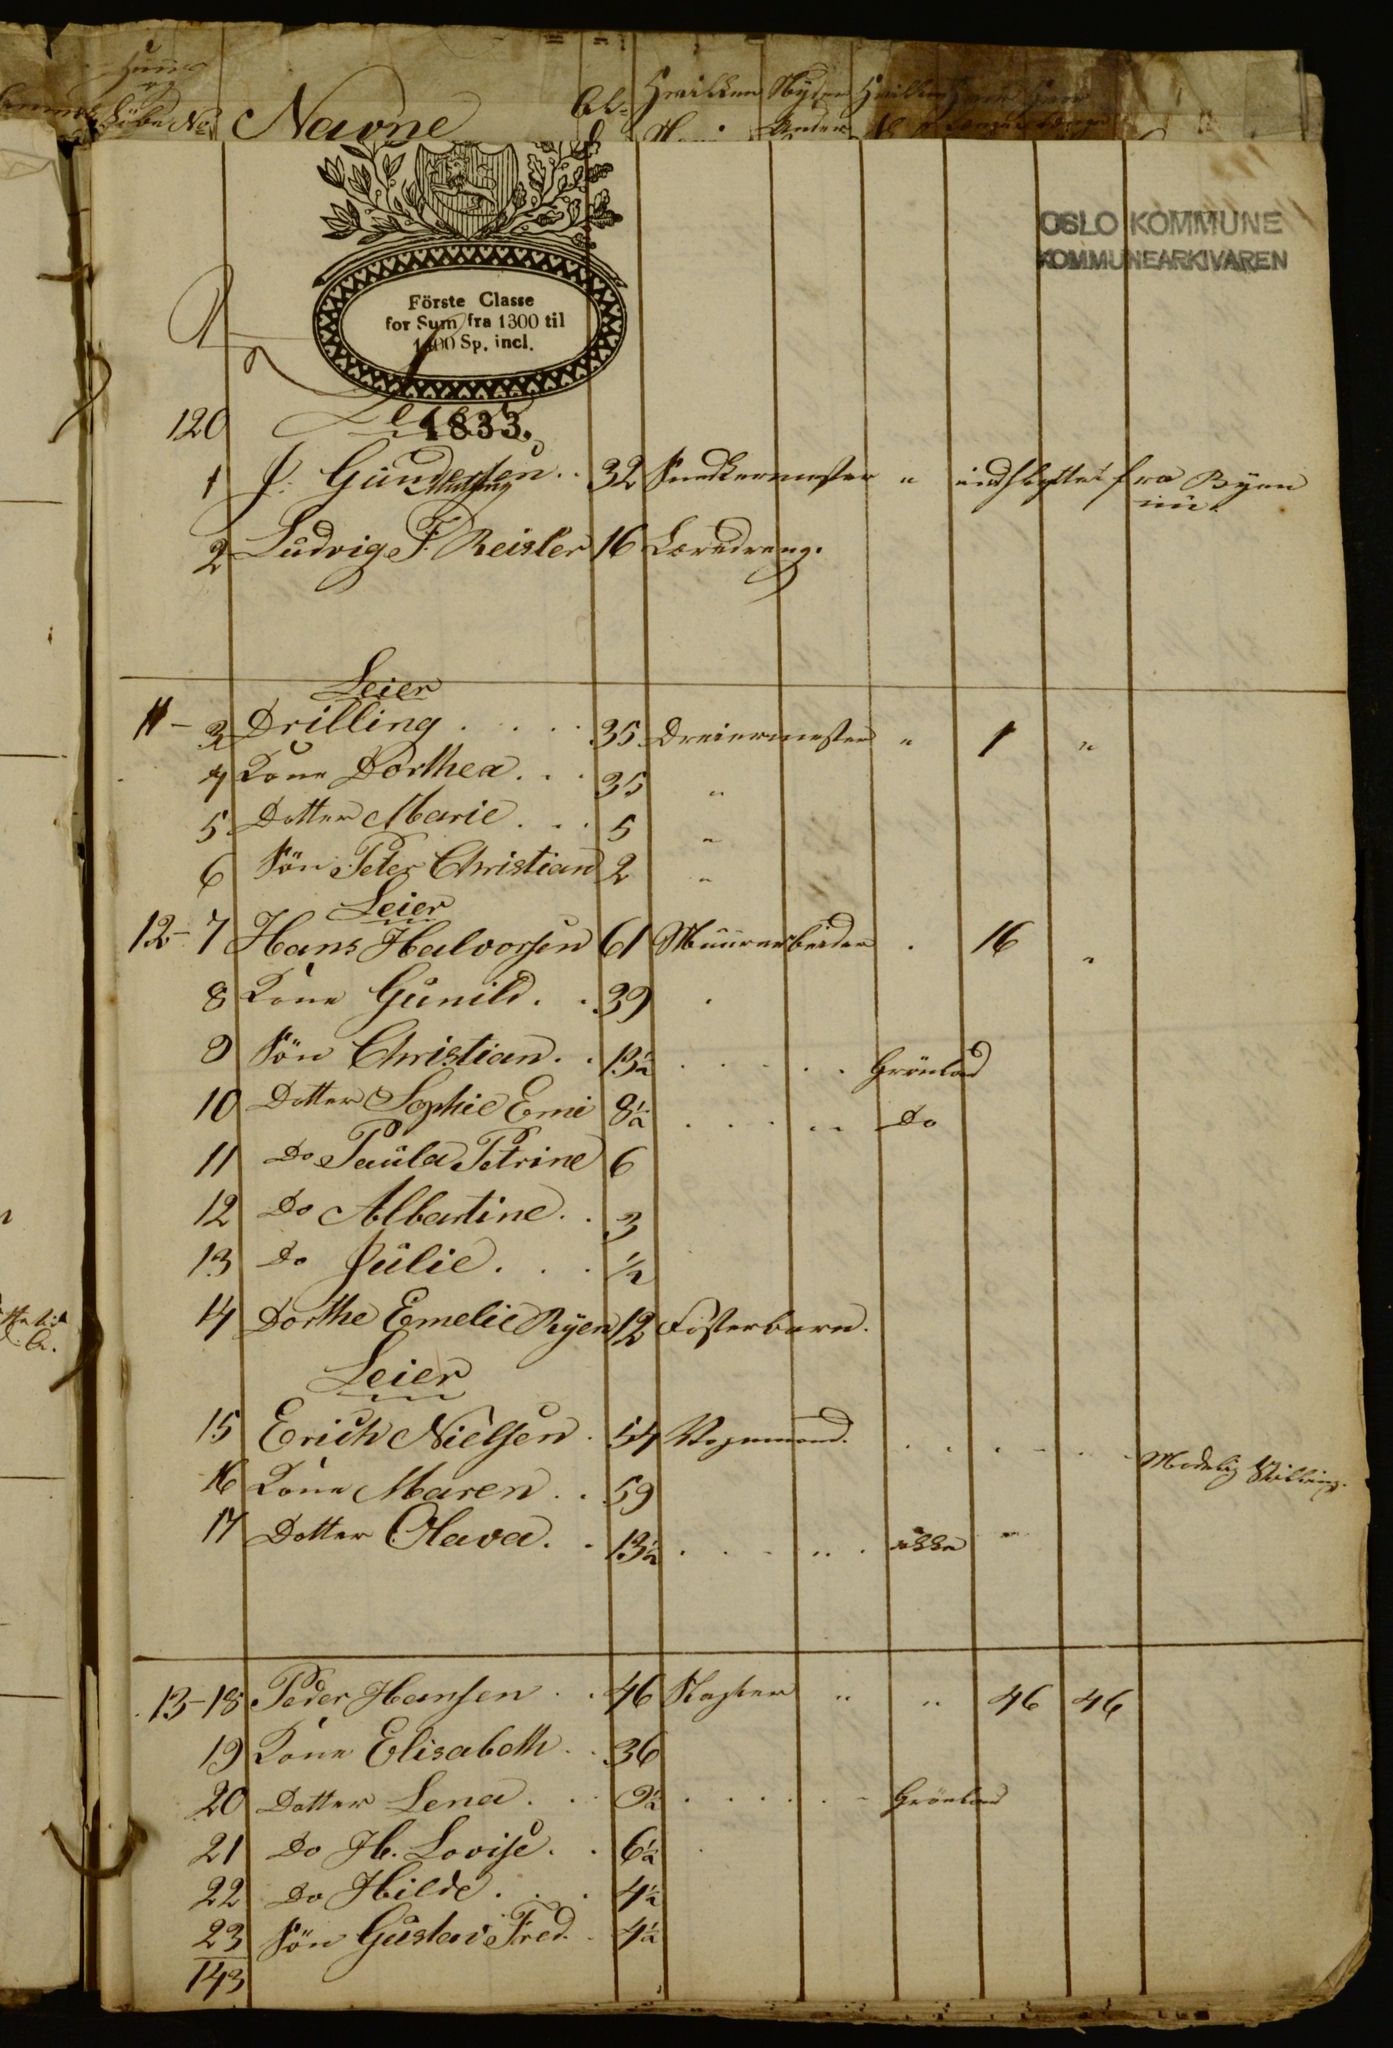 Löbe No Navne Al- Hvilken Nyder Hvilken
OSLO KOMMUNE
KOMMUNEARKIVAREN
Förste Classe
for Sum fra 1300 til
1400 Sp. incl.
1833.
120 Leier
1 J. Gundersen .. 32 Snedkermester " indflyttet fra Byen
nu.
2 Ludvig F. Reisler 16 Læredreng.
Leier
11 - 3 Drilling .... 35 Dreiermester " 1 "
4 Kone Dorthea ... 35 "
5 Datter Marie ... 5 "
6 Sön Peter Christian 2 "
Leier
12 - 7 Hans Halvorsen 61 Muurarbeider . 16 "
8 Kone Gunild .. 39 .
9 Sön Christian .. 13½ ..... Grönland
10 Datter Sophie Emi 8½ ..... Do
11 Do Paula Petrine 6
12 Do Albertine .. 3
13 Do Julie ... ½
14 Dorthe Emelie Ryen 12 Fosterbarn.
Leier
15 Erich Nielsen . 54 Vognmand. ...... Modelig Stilling.
16 Kone Maren .. 59
17 Datter Olava .. 13½ ..... ikke "
13 - 18 Peder Hansen .. 46 Slagter " " 46 46
19 Kone Elisabeth .. 36
20 Datter Lena ... 9½ ...... Grönland
21 Do H. Lovise .. 6½ .
22 Do Hilde ... 4½
23 Sön Gustav Fred. . 4½
143